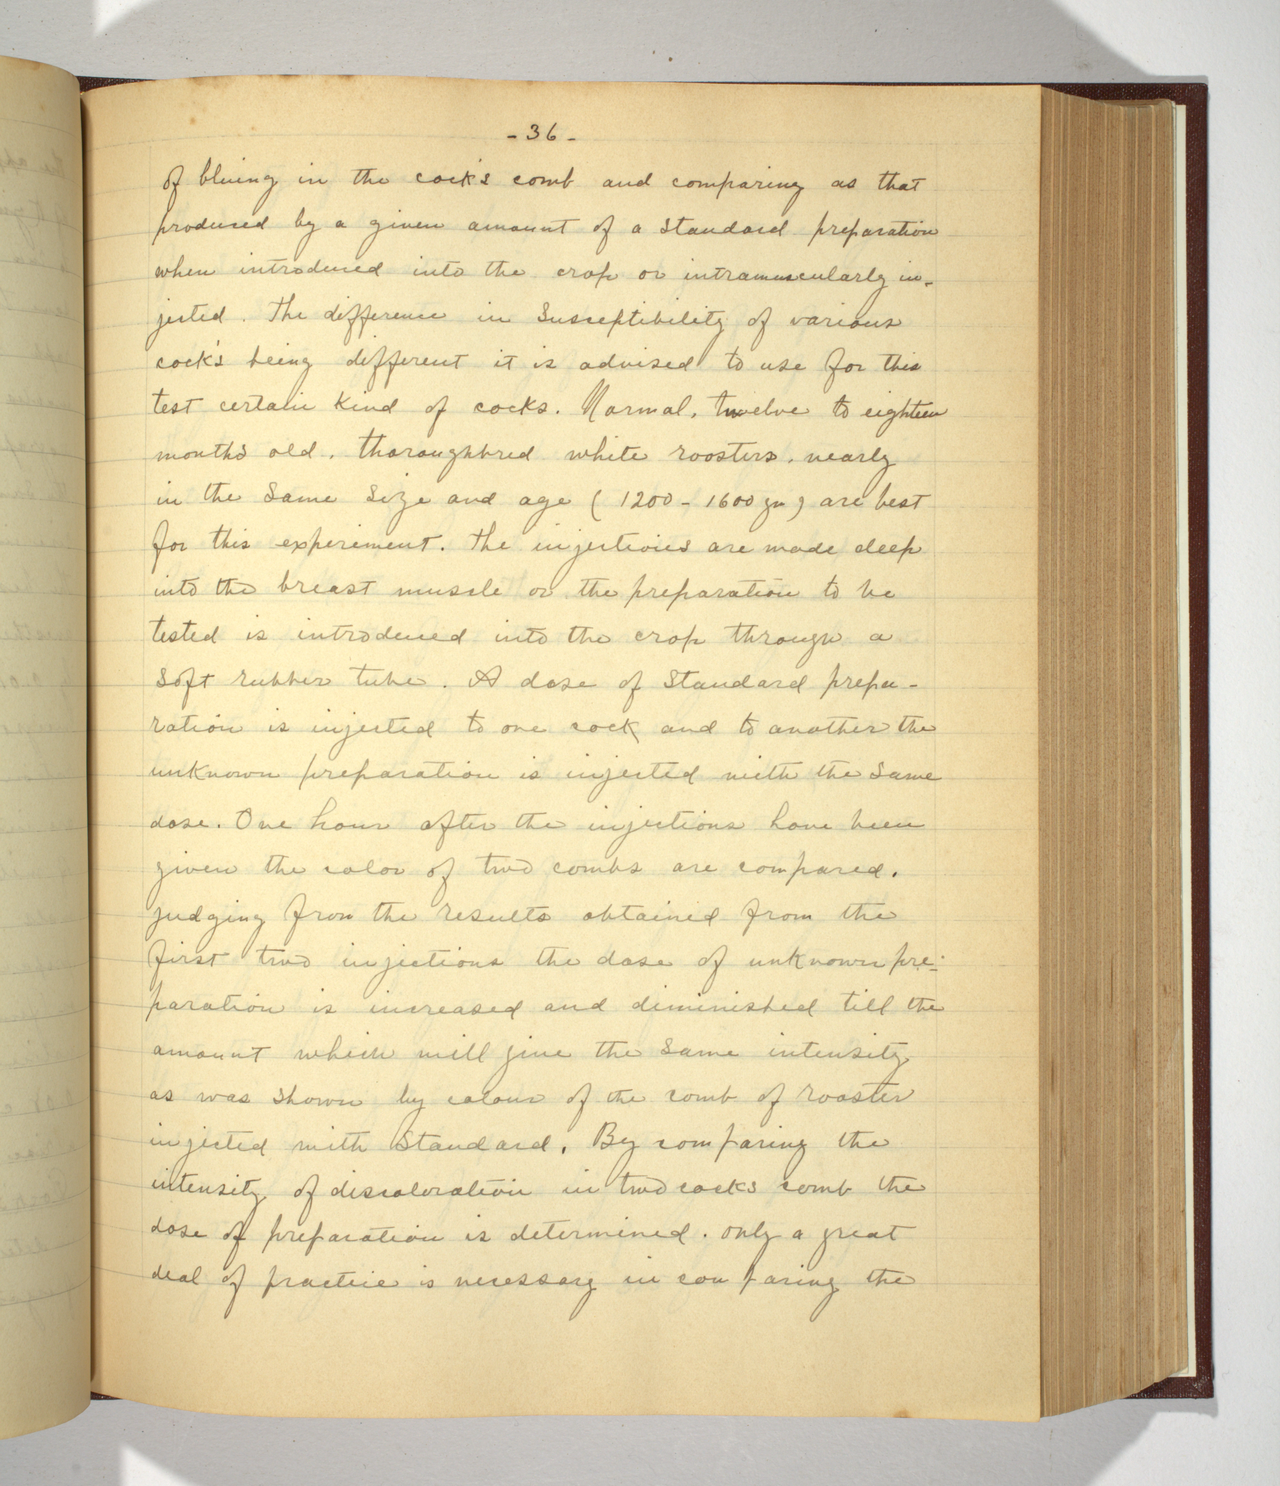 - 36 -
of bluing in the cock's comb and comparing as that
produced by a given amount of a standard preparation
when introduced into the crop or intramuscularly in-
jected. The difference in Susceptibility of various
cock's being different it is advised to use for this
test certain kind of cocks. Normal, twelve to eighteen
months old, thoroughbred white roosters, nearly
in the same size and age (1200 - 1600 gm) are best
for this experiment. The injections are made deep
into the breast muscle or the preparation to be
tested is introduced into the crop through a
soft rubber tube. A dose of Standard prepa-
ration is injected to one cock and to another the
unknown preparation is injected with the same
dose. One hour after the injections have been
given the color of two combs are compared.
judging from the results obtained from the
first two injections the dose of unknown pre-
paration is increased and diminished till the
amount which will give the same intensity
as was shown by colour of the comb of rooster
injected with Standard. By comparing the
intensity of discoloration in two cocks comb the
dose of preparation is determined. only a great
deal of practice is necessary in comparing the